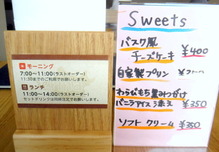 モーニング
7:00～11:00(ラストオーダー)
ランチ
11:00～14:00(ラストオーダー)
Sweets
バスク風
チーズケーキ
¥400
自家製プリン
わらびもち黒みつがけ
バニラアイス添え ¥350
ソフトクリーム ¥350